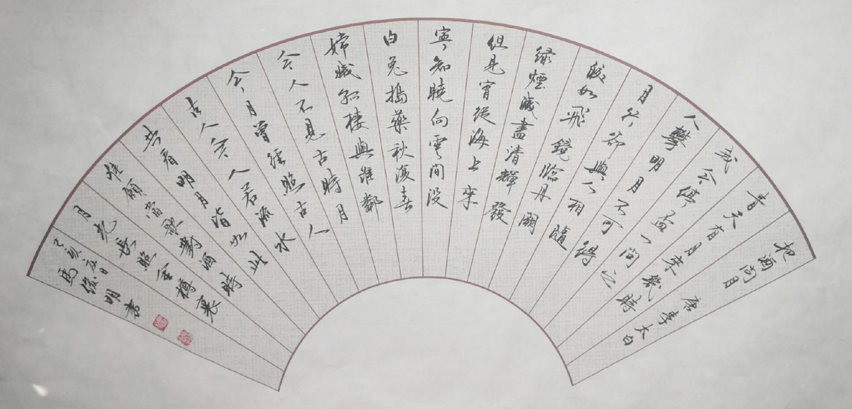 把酒问月 唐李太白
青天有月来几时
我今停杯一问之
人攀明月不可得
月行却與人相隨
皎如飛鏡臨丹闕
绿煙滅盡清輝發
但見宵從海上來
寧知曉向雲间没
白兔搗藥秋復春
嫦娥孤棲與誰鄰
今人不見古時月
今月曾经照古人
古人今人若流水
共看明月皆如此
惟願當歌對酒時
月光长照金樽裏
乙亥 日 馬俊明書